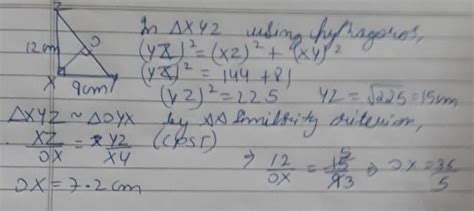 Z
12cm
O
X
9cm
Y
In ΔXYZ using pythagoras,
(YZ)² = (XZ)² + (XY)²
(YZ)² = 144 + 81
(YZ)² = 225 YZ = √225 = 15cm
ΔXYZ ~ ΔOYX by AA Similarity criterion,
XZ/OX = YZ/XY (CPST)
⇒ 12/OX = 15/9 5/3 ⇒ OX = 36/5
OX = 7.2 cm